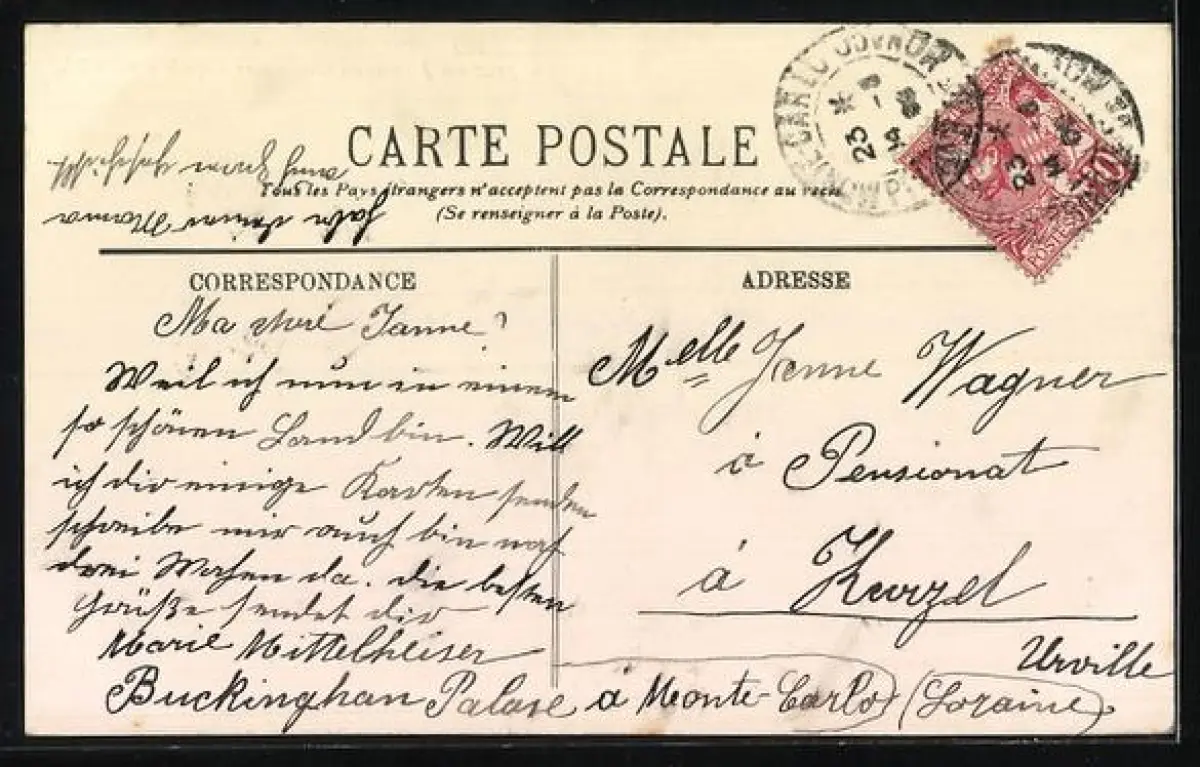 CARTE POSTALE
Tous les Pays étrangers n'acceptent pas la Correspondance au recto
(Se renseigner à la Poste).
CORRESPONDANCE
Ma cheré Janne!
Weil ich nun in einem
so schönen Land bin. Will
ich dir einige Karten senden
schreibe mir auch bin noch
drei Wochen da. die besten
Grüße sendet dir
Marie Mittelheiser
Buckinghan Palase à Monte-Carlo
ADRESSE
Melle Jenne Wagner
à Pensionat
à Kurzel
Urville
(Loraine)
MONTE CARLO
23
POSTES